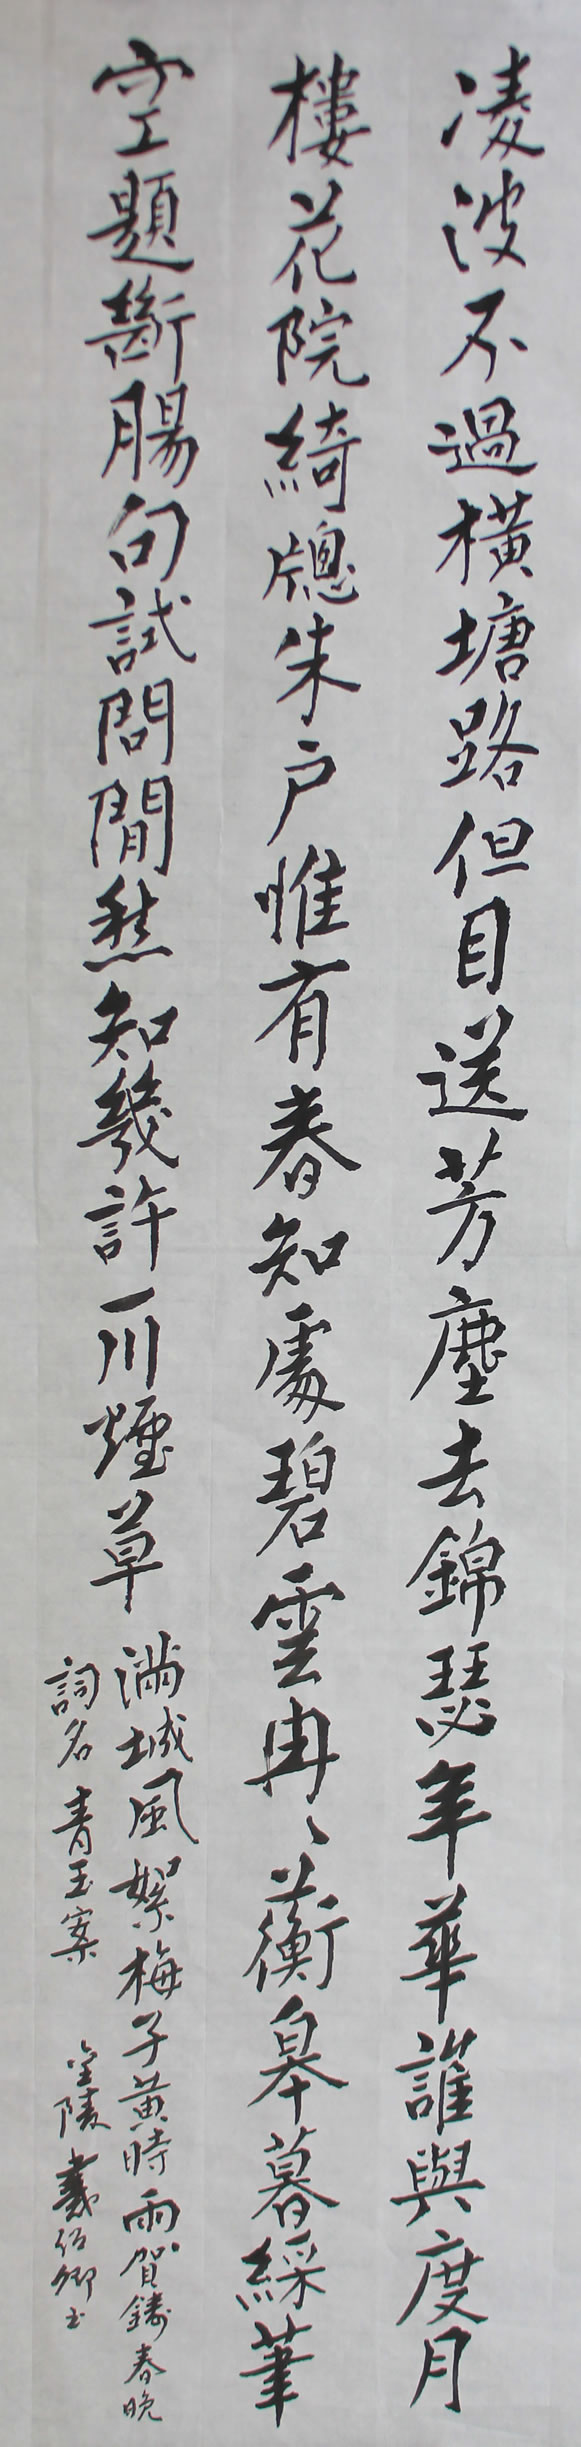 凌波不過橫塘路但目送芳塵去錦瑟年華誰與度月
樓花院綺牕朱戶惟有春知處碧雲冉〻蘅皋暮綵筆
空題斷腸句試問閒愁知幾許一川煙草
滿城風絮梅子黃時雨賀鑄春晚
詞名青玉案
金陵戴伯卿书